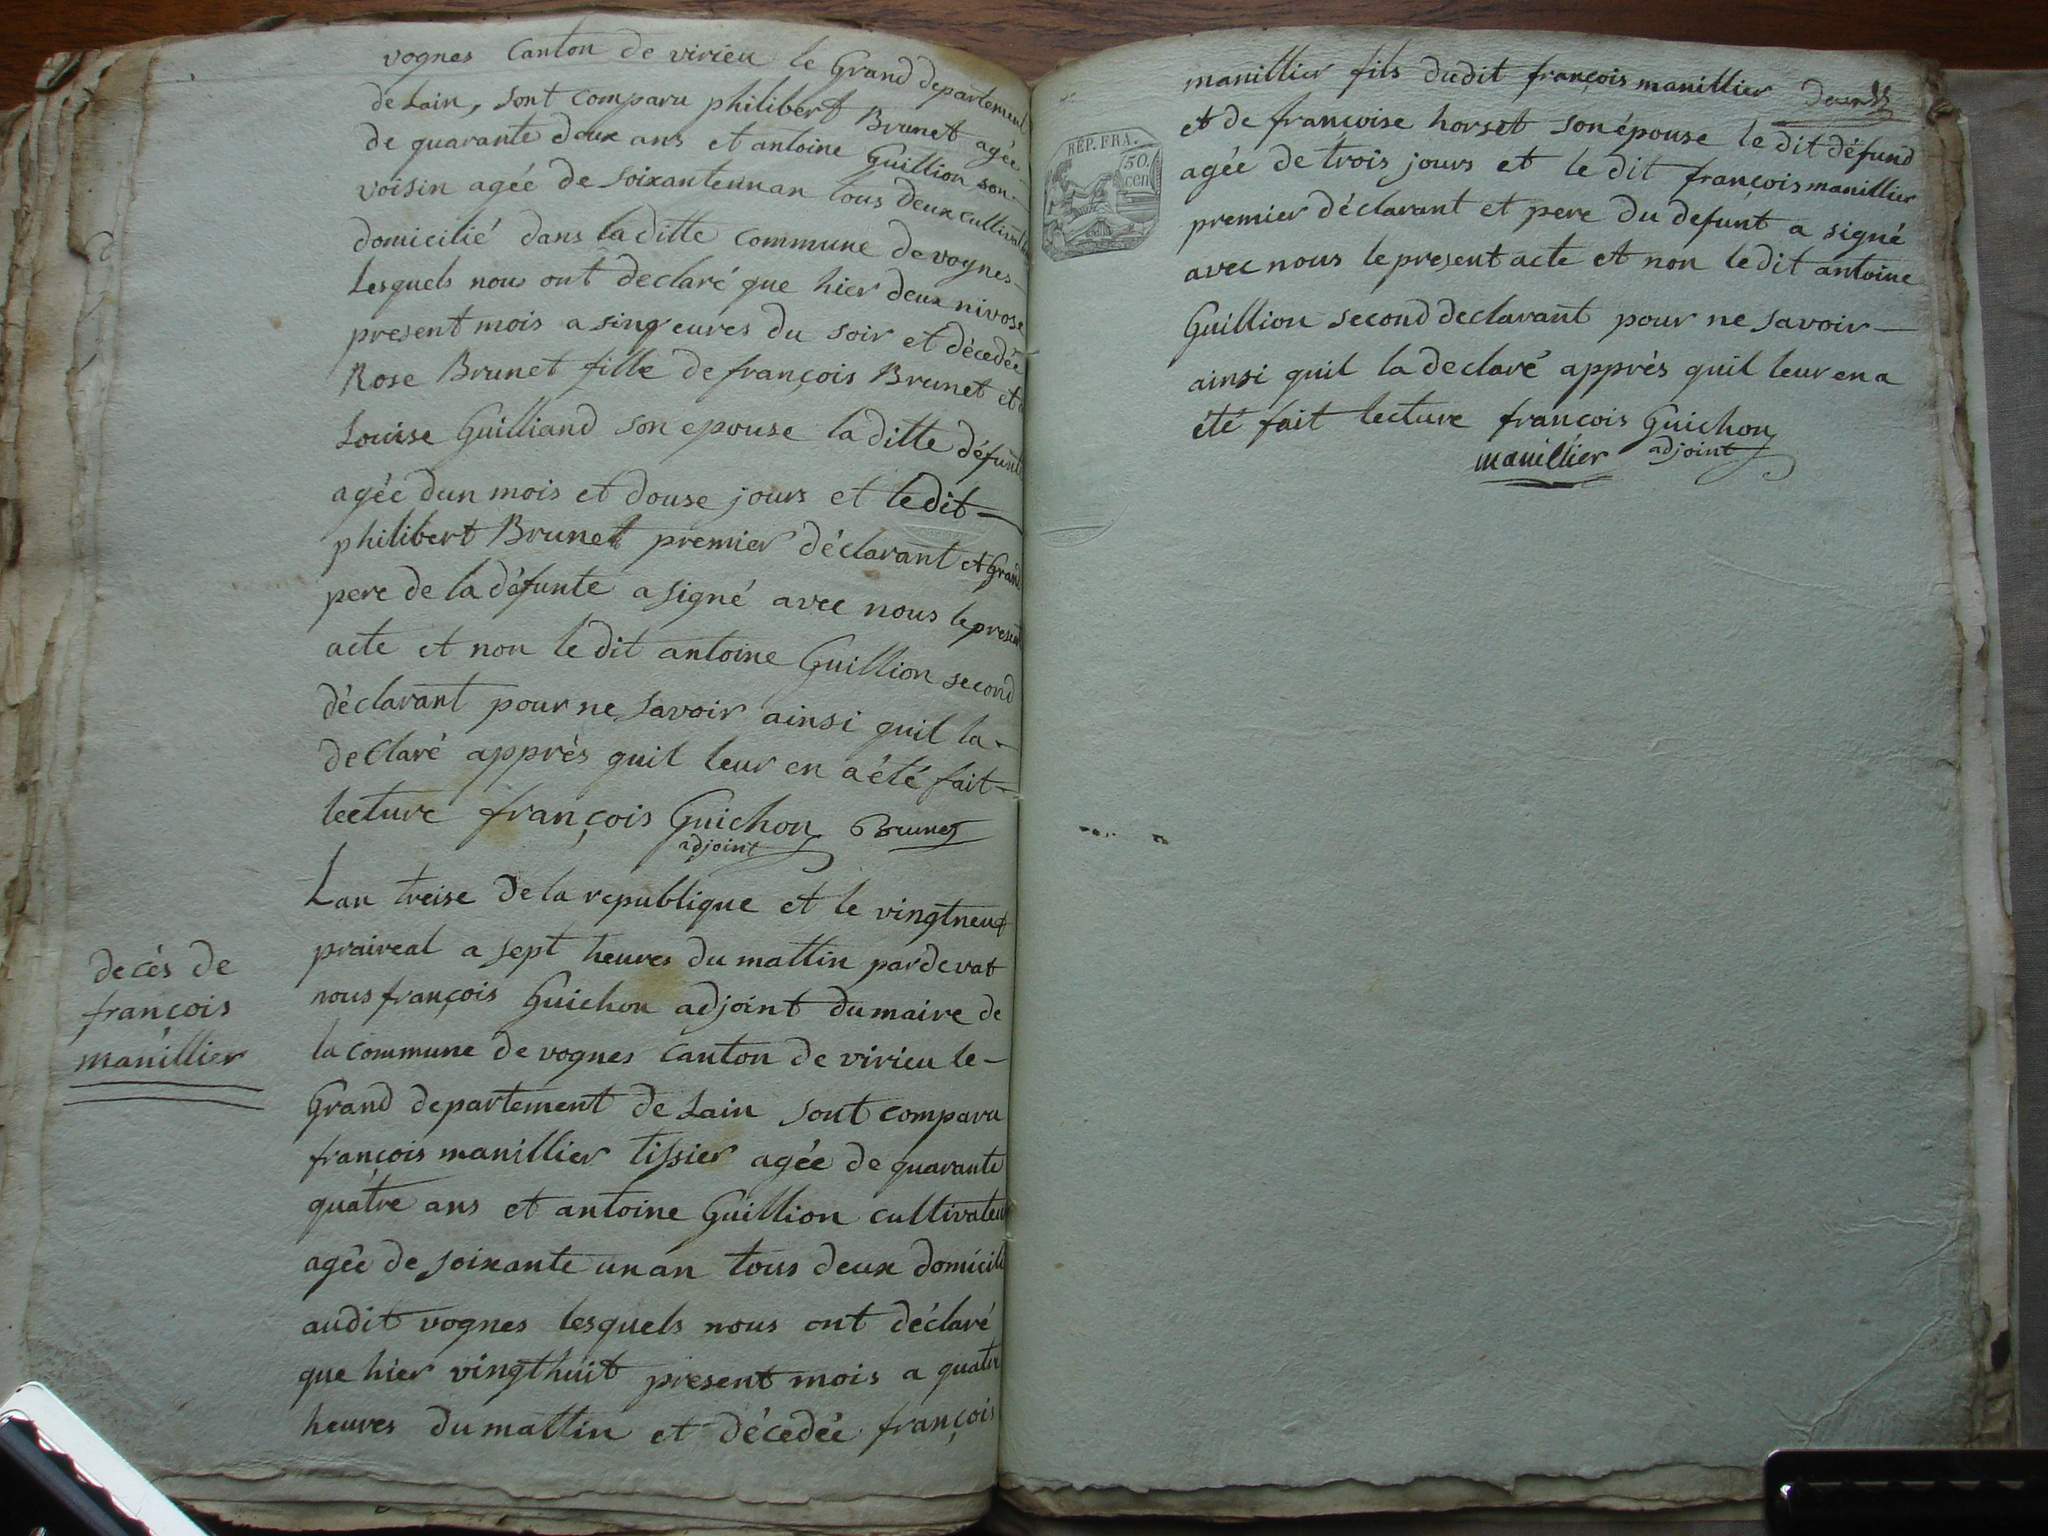 vognes Canton de virieu le Grand departement
de Lain, sont comparu philibert Brunet agée
de quarante doux ans et antoine Guillion son
voisin agée de soixanteunan tous deux cultivat
domicilié dans la ditte commune de vognes
Lesquels nous ont declaré que hier deux nivose
present mois a sinq eures du soir et décedée
Rose Brunet fille de françois Brunet et
Louise Guilliand son epouse la ditte défunt
agée dun mois et douse jours et le dit
philibert Brunet premier déclarant et Grand
pere de la défunte a signé avec nous le present
acte et non le dit antoine Guillion second
déclarant pour ne savoir ainsi quil la
declaré apprés quil leur en a été fait
lecture françois Guichon Brunet
adjoint
Lan treise de la republique et le vingtneuf
praireal a sept heures du mattin pardevat
nous françois Guichon adjoint du maire de
la commune de vognes Canton de virieu le
Grand departement de Lain sont comparu
françois manillier tissier agée de quarante
quatre ans et antoine Guillion cultivateu
agée de soixante unan tous deux domicili
audit vognes lesquels nous ont déclaré
que hier vingthuit present mois a quatre
heures du mattin et décedée françois
decés de
françois
manillier
REP. FRA.
50.
cen
manillier fils dudit françois manillier
et de francoise horset son épouse le dit défund
agée de trois jours et le dit françois manillier
premier déclarant et pere du defunt a signé
avec nous le present acte et non le dit antoine
Guillion second declarant pour ne savoir
ainsi quil la declaré apprés quil leur en a
été fait lecture francois Guichon
manillier adjoint